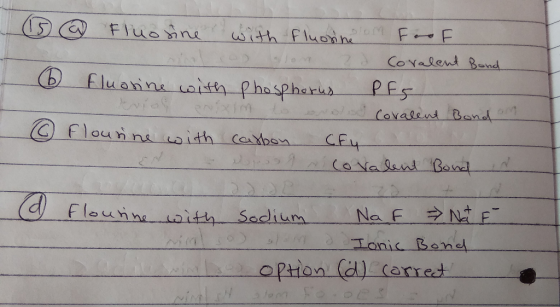 (15) (a) Fluorine with Fluorine F—F
Covalent Bond
(b) Fluorine with phosphorus PF5
Covalent Bond
(c) Flourine with carbon CF4
Covalent Bond
(d) Flourine with Sodium NaF ⇒ Na+ F-
Ionic Bond
option (d) corret